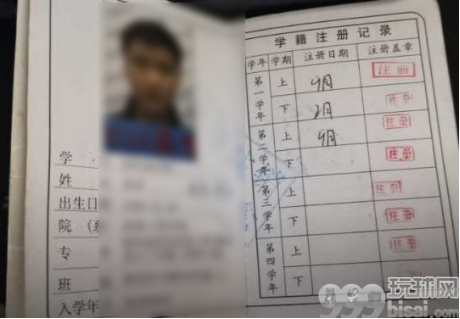 学
姓
出生日
院（系
专
班
入学年
学籍注册记录
学年 学期 注册日期 注册盖章
第一学年 上 9月 注册
下 2月 注册
第二学年 上 9月 注册
下 注册
第三学年 上 注册
下 注册
第四学年 上 注册
下
玩球网
999bisai.com